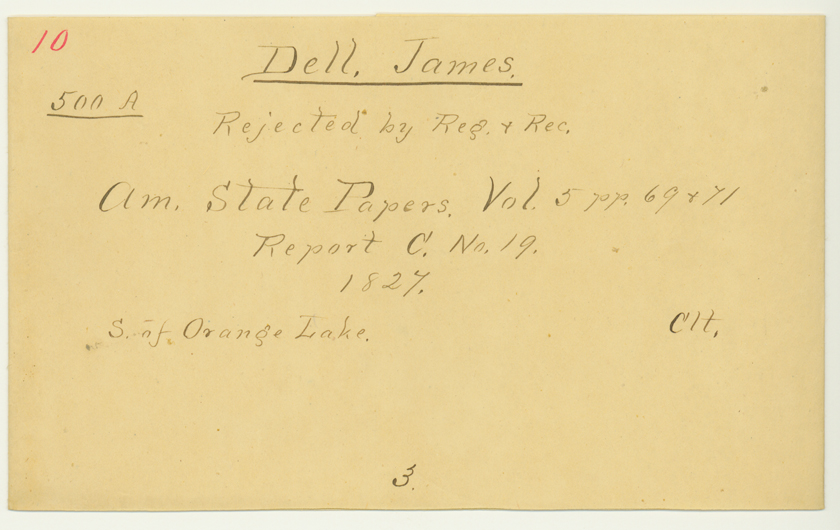 10
Dell, James.
500 A
Rejected by Reg. & Rec.
Am. State Papers. Vol. 5 pp. 69 & 71
Report C. No. 19.
1827.
S. of Orange Lake. Clt.
3.